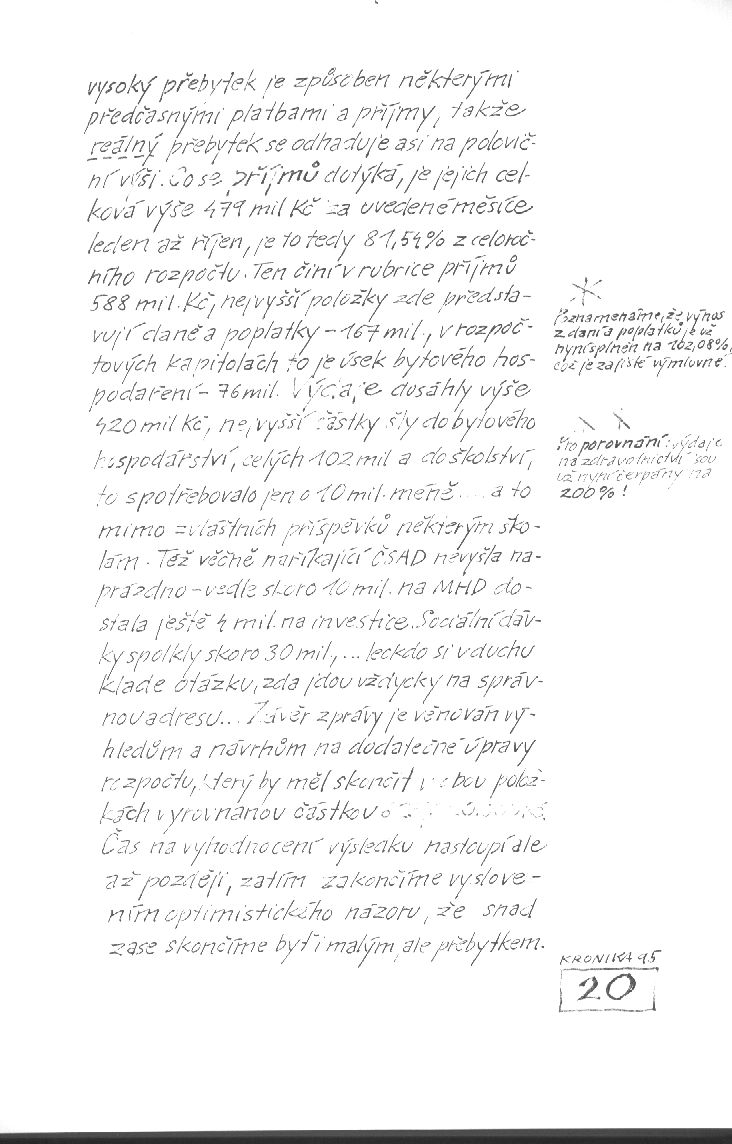 vysoký přebytek je způsoben některými
předčasnými platbami a příjmy, takže
reálný přebytek se odhaduje asi na polovič-
ní výši. Co se příjmů dotýká, je jejich cel-
ková výše 479 mil Kč za uvedené měsíce
leden až říjen, je to tedy 81,54% z celoroč-
ního rozpočtu. Ten činí v rubrice příjmů
588 mil. Kč, nejvyšší položky zde představ-
vují daně a poplatky - 167 mil., v rozpoč-
tových kapitolách to je úsek bytového hos-
podaření - 76 mil. Výdaje dosáhly výše
420 mil Kč, nejvyšší částky šly do bytového
hospodářství, celých 102 mil a do školství,
to spotřebovalo jen o 10 mil. méně ... a to
mimo zvláštních příspěvků některým ško-
lám. Též věčně naříkající ČSAD nevyšla na-
prázdno - vedle skoro 10 mil. na MHD do-
stala ještě 4 mil. na investice. Sociální dáv-
ky spolkly skoro 30 mil., ... leckdo si v duchu
klade otázku, zda jdou vždycky na správ-
nou adresu... Závěr zprávy je věnován vý-
hledům a návrhům na dodatečné úpravy
rozpočtu, který by měl skončit v obou polož-
kách vyrovnanou částkou
Čas na vyhodnocení výsledku nastoupí ale
až později, zatím zakončíme vyslove-
ním optimistického názoru, že snad
zase skončíme byť i malým, ale přebytkem.
Poznamenáme, že výnos
z daní a poplatků je už
nyní splněn na 102,08%,
což je zajisté výmluvné.
Pro porovnání: výdaje
na zdravotnictví jsou
už nyní čerpány na
200%!
KRONIKA 95
20